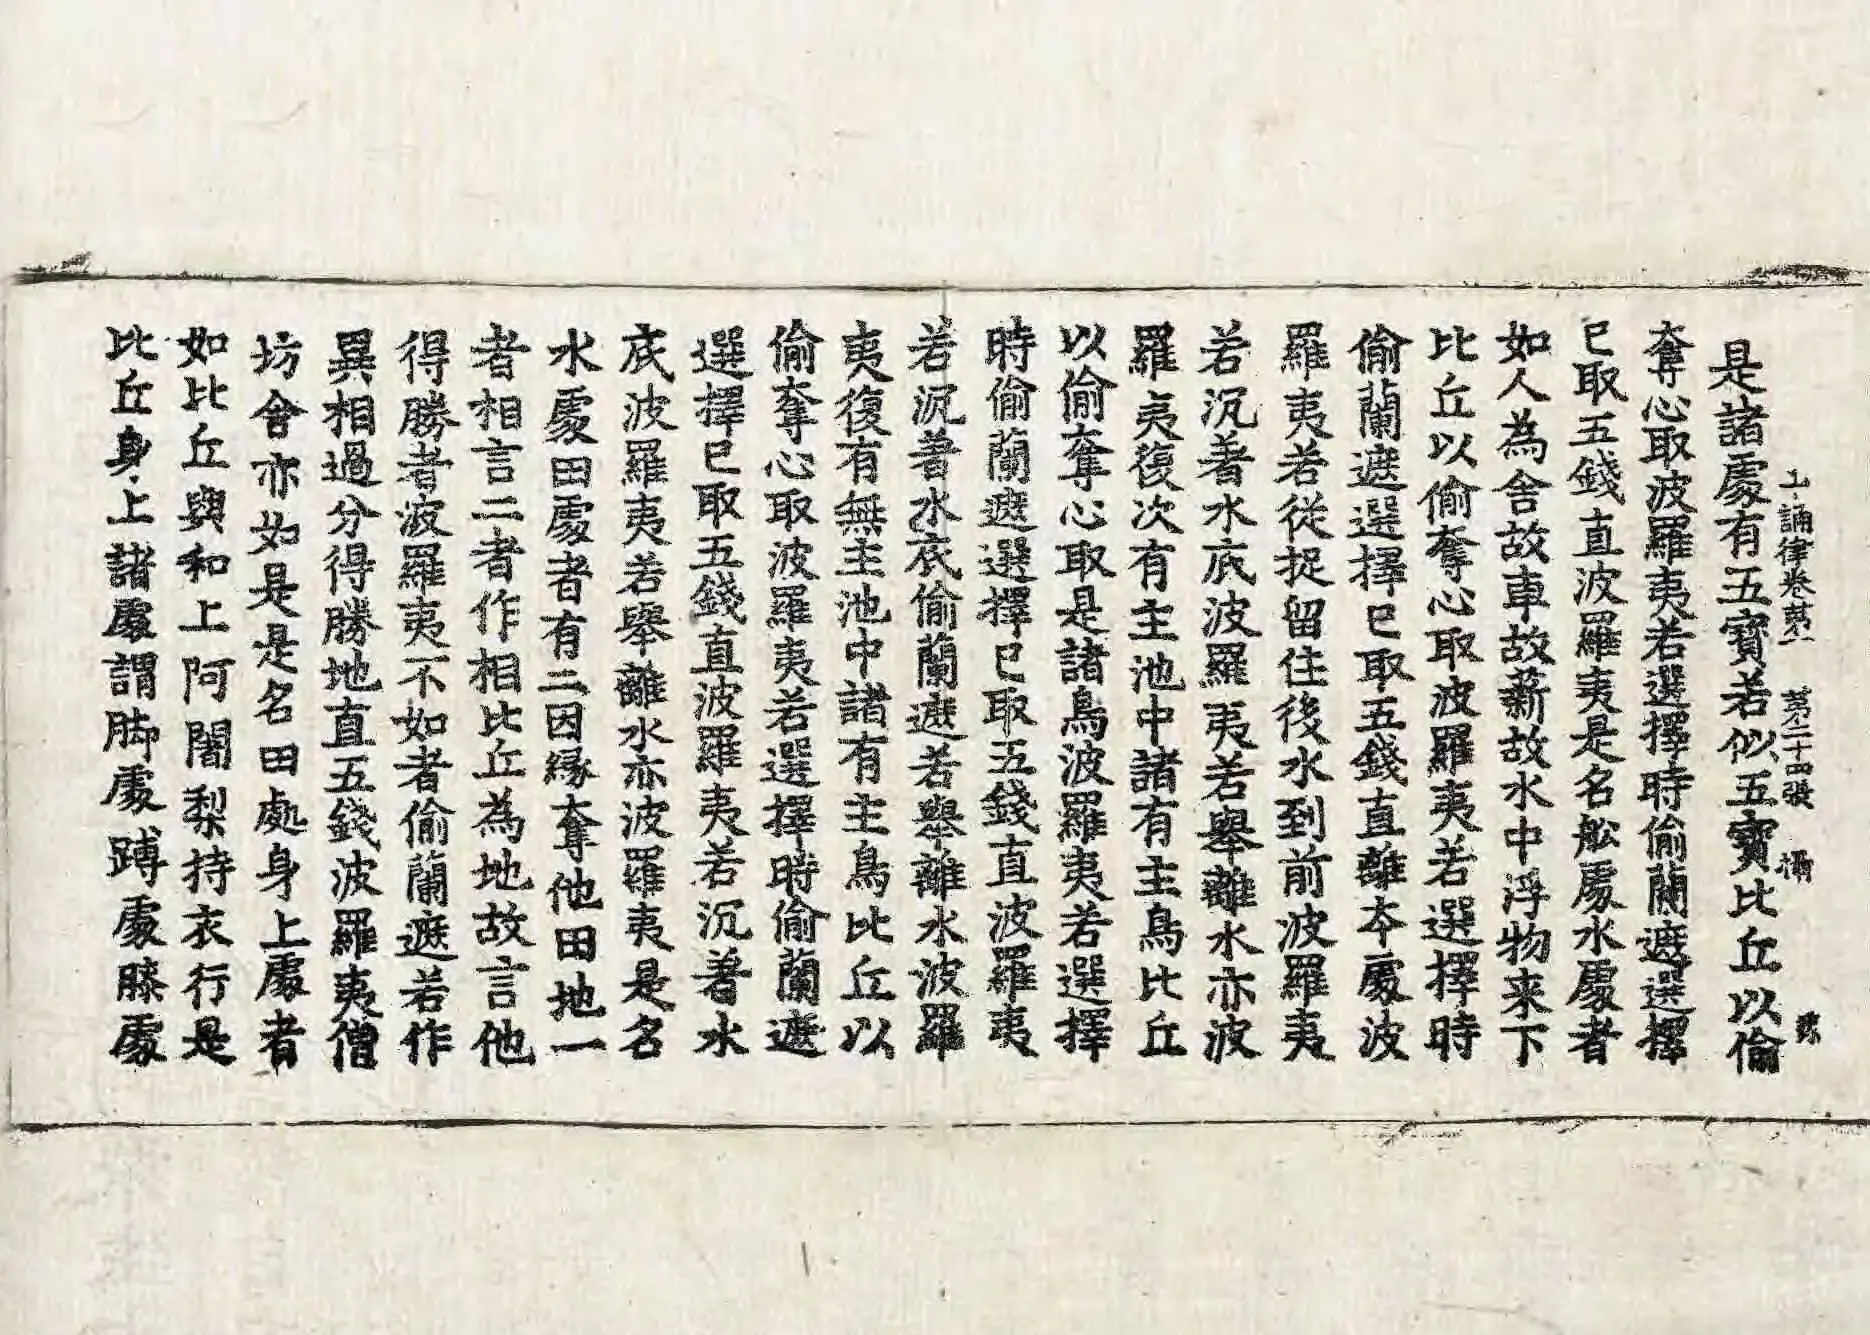 是諸處有五寳若似五寳比丘以偷
十誦律卷第一 第二十四張 攝
奪心取波羅夷若選擇時偷蘭遮選擇
已取五錢直波羅夷是名舩處水處者
如人為舍故車故薪故水中浮物来下
比丘以偷奪心取波羅夷若選擇時
偷蘭遮選擇已取五錢直離本處波
羅夷若從捉留住後水到前波羅夷
若沉著水底波羅夷若舉離水亦波
羅夷復次有主池中諸有主鳥比丘
以偷奪心取是諸鳥波羅夷若選擇
時偷蘭遮選擇已取五錢直波羅夷
若沉著水底偷蘭遮若舉離水波羅
夷復有無主池中諸有主鳥比丘以
偷奪心取波羅夷若選擇時偷蘭遮
選擇已取五錢直波羅夷若沉著水
底波羅夷若舉離水亦波羅夷是名
水處田處者有二因縁奪他田地一
者相言二者作相比丘為地故言他
得勝者波羅夷不如者偷蘭遮若作
異相過分得勝地直五錢波羅夷僧
坊舍亦如是是名田處身上處者
如比丘與和上阿闍梨持衣行是
比丘身上諸處謂脚處踤處膝處